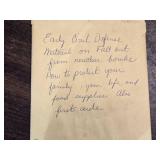 Early Civil Defense
Material on Fall out
from nuclear bombs
How to protect your
family, your life, and
food supplies. Also
first aide.